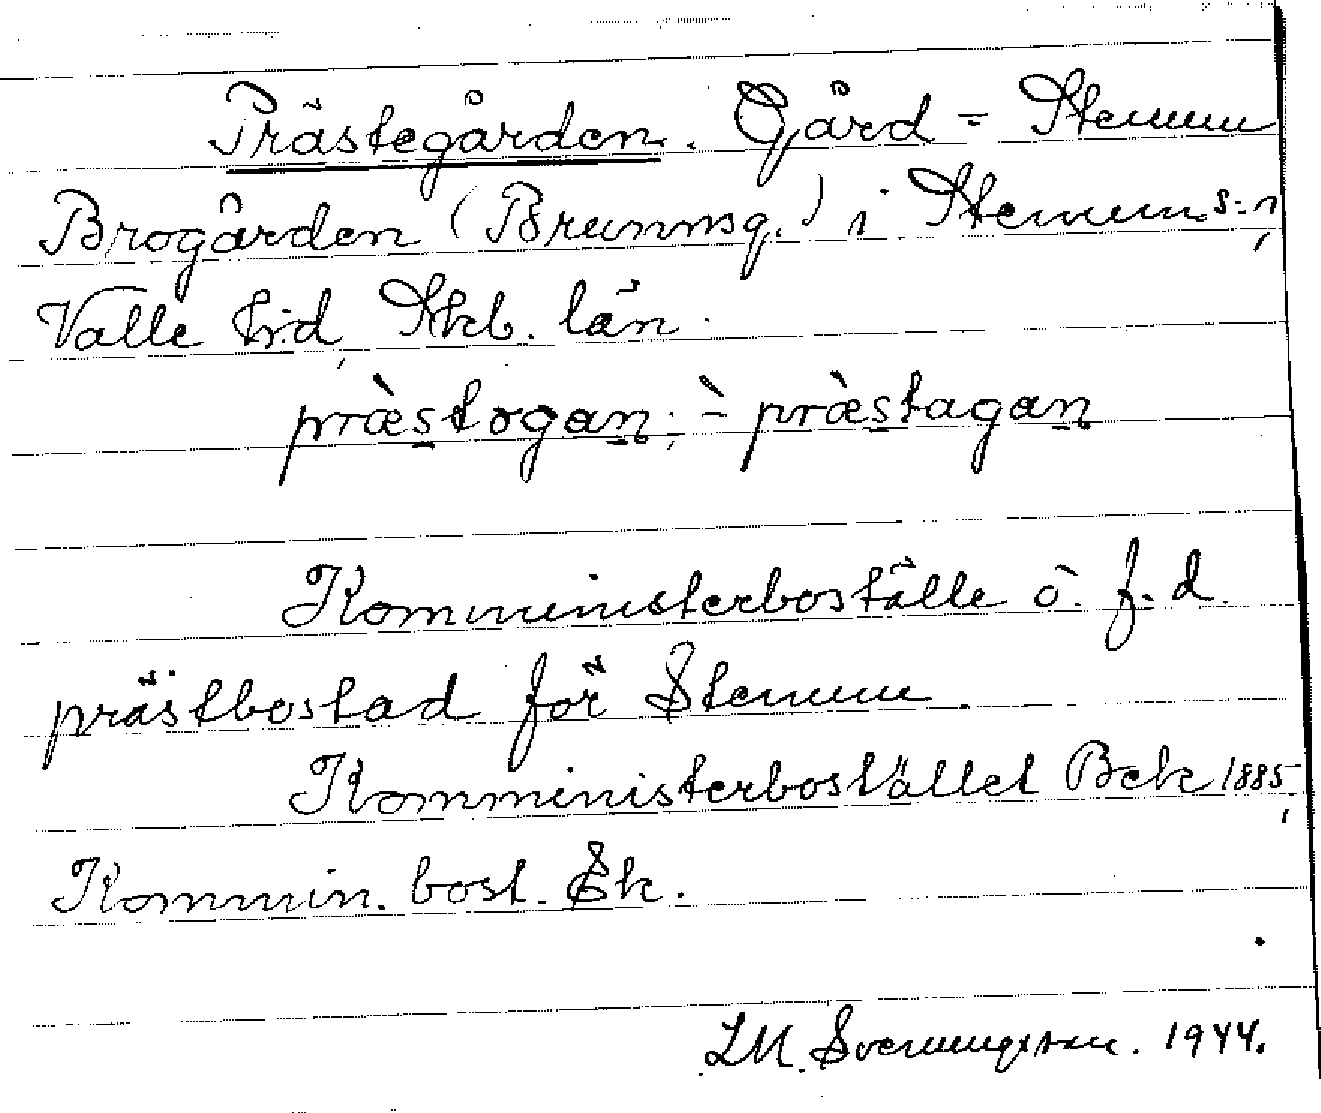 Prästegården. Gård = Stenum
Brogården (Brunnsg.) i Stenum s:n,
Valle h:d, Skb. län.
præ̀stogan; - præ̀stagan
Komministerboställe o. f. d.
prästbostad för Stenum.
Komministerbostället Bek 1885,
Kommin. bost. Ek.
L M. Svenungsson. 1944.